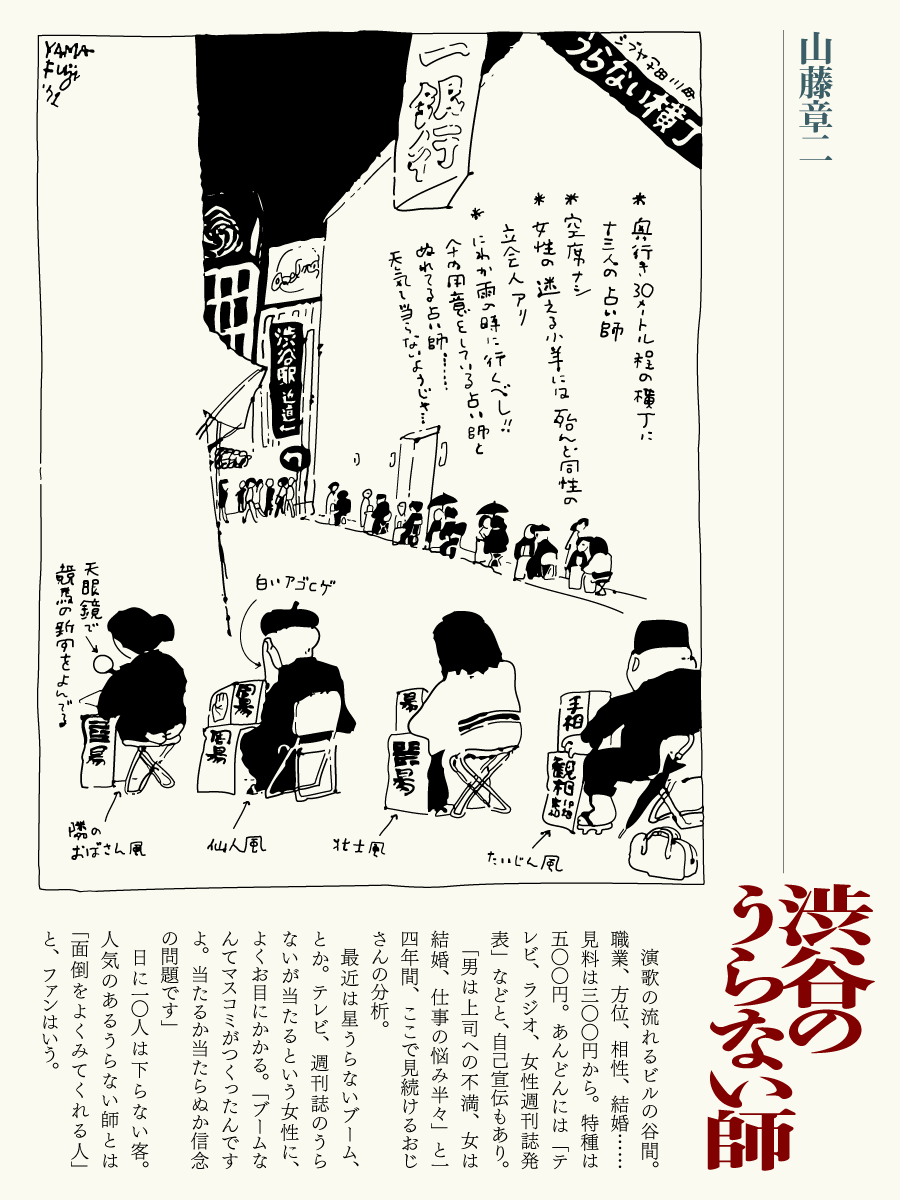 山藤章二
渋谷の
うらない師
YAMA
Fuji
一銀行
うらない横丁
渋谷駅近道
*奥行き30メートル程の横丁に
十三人の占い師
*空席ナシ
*女性の迷える小羊には殆んど同性の
立会人アリ
*にわか雨の時に行くべし!!
傘の用意をしている占い師と
ぬれてる占い師……
天気も当らないようじゃ…
天眼鏡で
競馬の新聞をよんでる
白いアゴヒゲ
易
周易
周易
易
易
手相
観相
隣の
おばさん風
仙人風
壮士風
たいじん風
演歌の流れるビルの谷間。
職業、方位、相性、結婚……
見料は三〇〇円から。特種は
五〇〇円。あんどんには「テ
レビ、ラジオ、女性週刊誌発
表」などと、自己宣伝もあり。
「男は上司への不満、女は
結婚、仕事の悩み半々」と一
四年間、ここで見続けるおじ
さんの分析。
最近は星うらないブーム、
とか。テレビ、週刊誌のうら
ないが当たるという女性に、
よくお目にかかる。「ブームな
んてマスコミがつくったんです
よ。当たるか当たらぬか信念
の問題です」
日に一〇人は下らない客。
人気のあるうらない師とは
「面倒をよくみてくれる人」
と、ファンはいう。